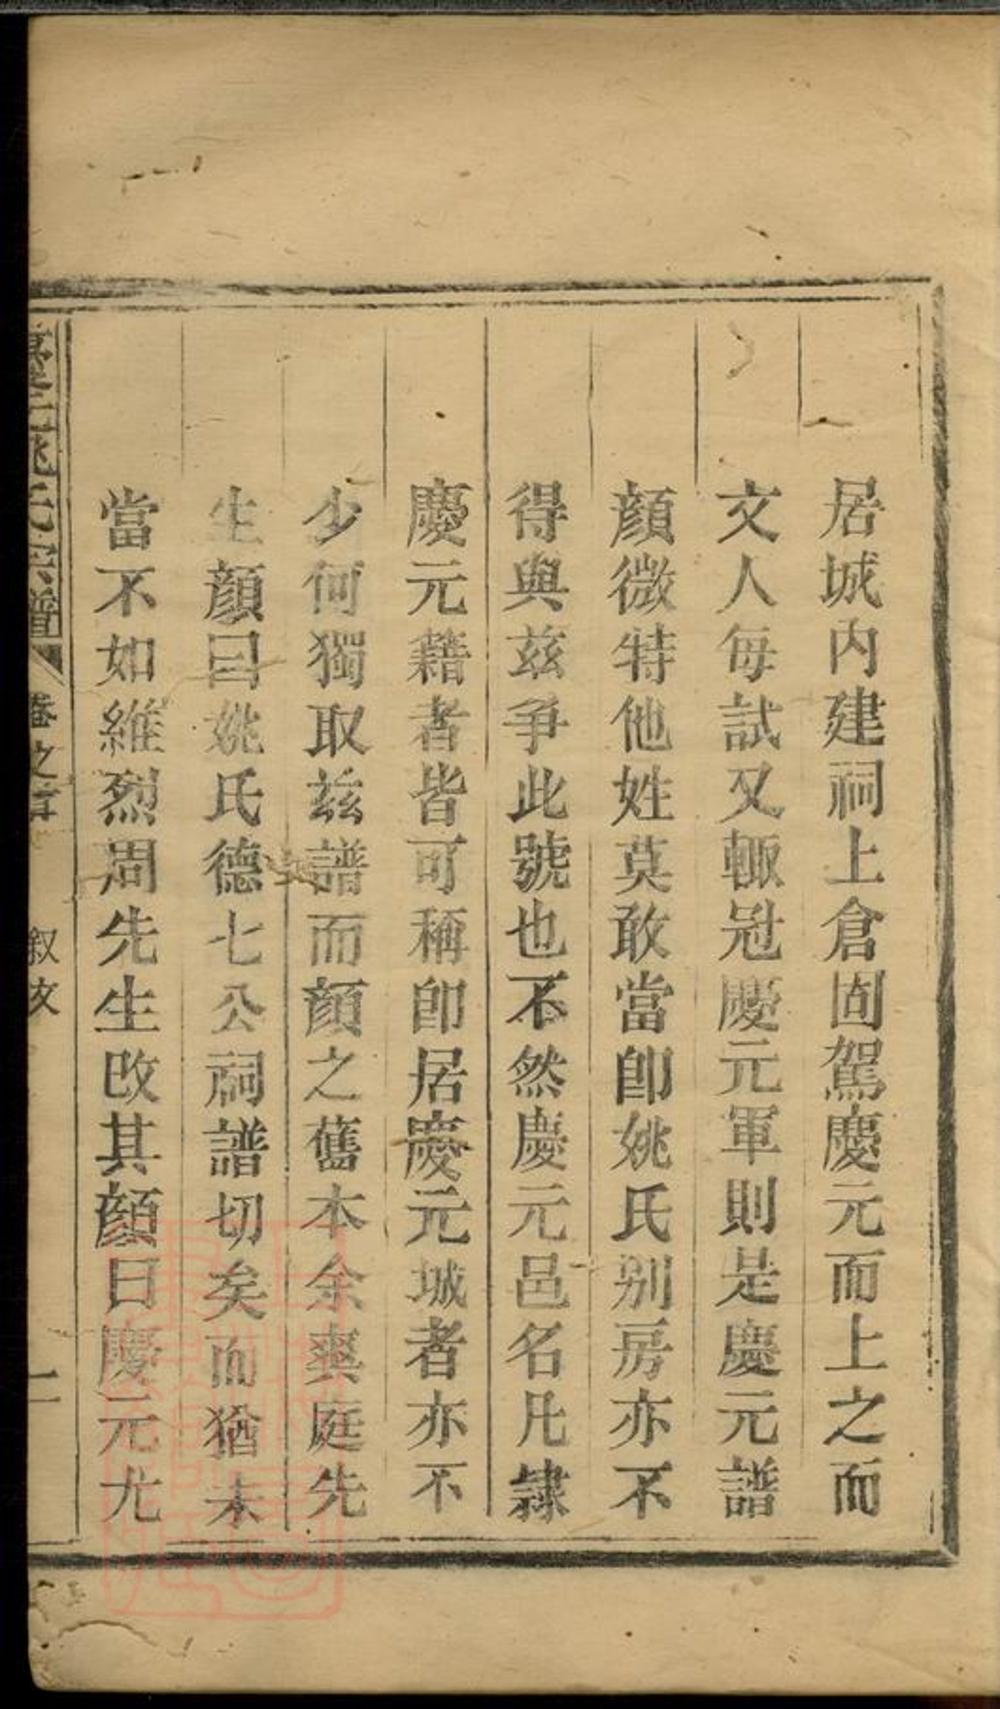 居城内建祠上倉固駕慶元而上之而
文人每試又輙冠慶元軍則是慶元譜
顔微特他姓莫敢當卽姚氏别房亦不
得與茲爭此號也不然慶元邑名凡隷
慶元藉者皆可稱卽居慶元城者亦不
少何獨取兹譜而顔之舊本余奭庭先
生顔曰姚氏德七公祠譜切矣而猶未
當不如維烈周先生改其顔曰慶元尤
姚氏宗譜 卷之首 叙文 二